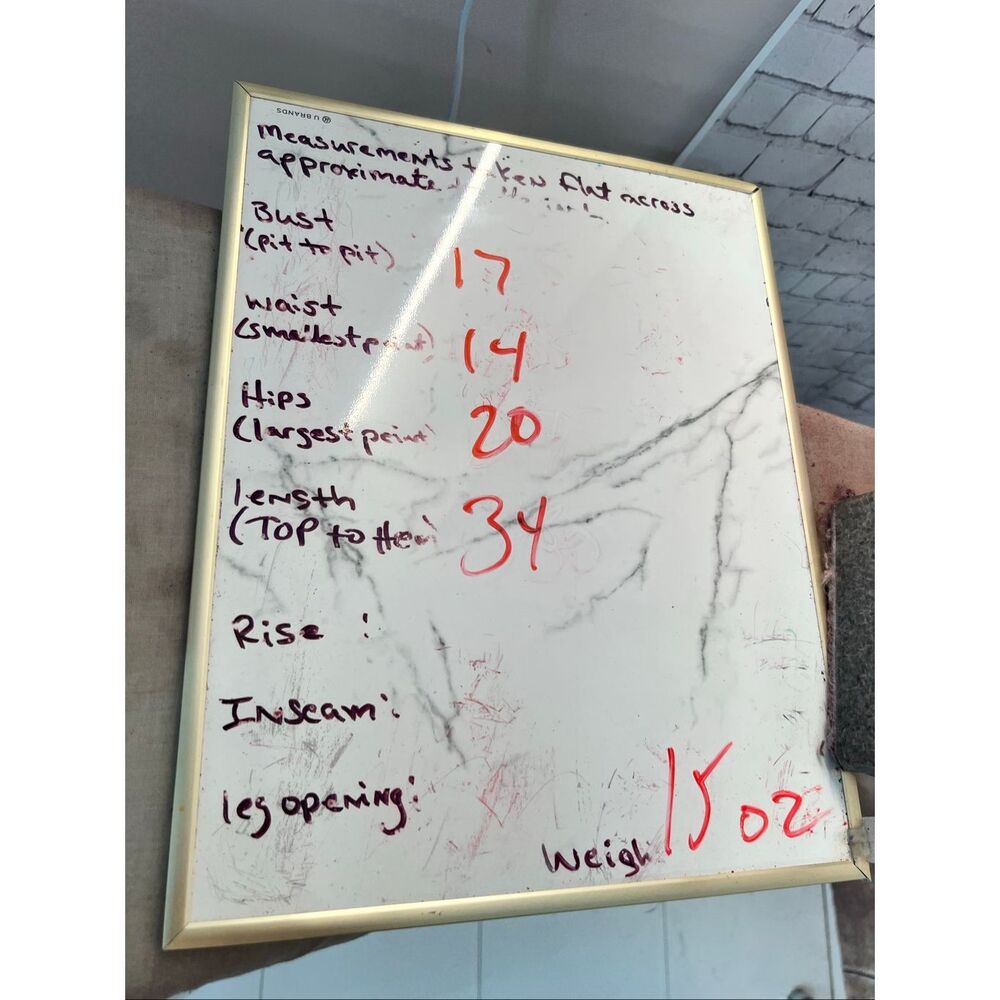 U BRANDS
Measurements taken flat across
approximate
Bust
(pit to pit) 17
waist
(smallest point) 14
Hips
(largest point 20
length
(TOP to Hem) 34
Rise :
Inseam :
leg opening :
Weigh 15 oz